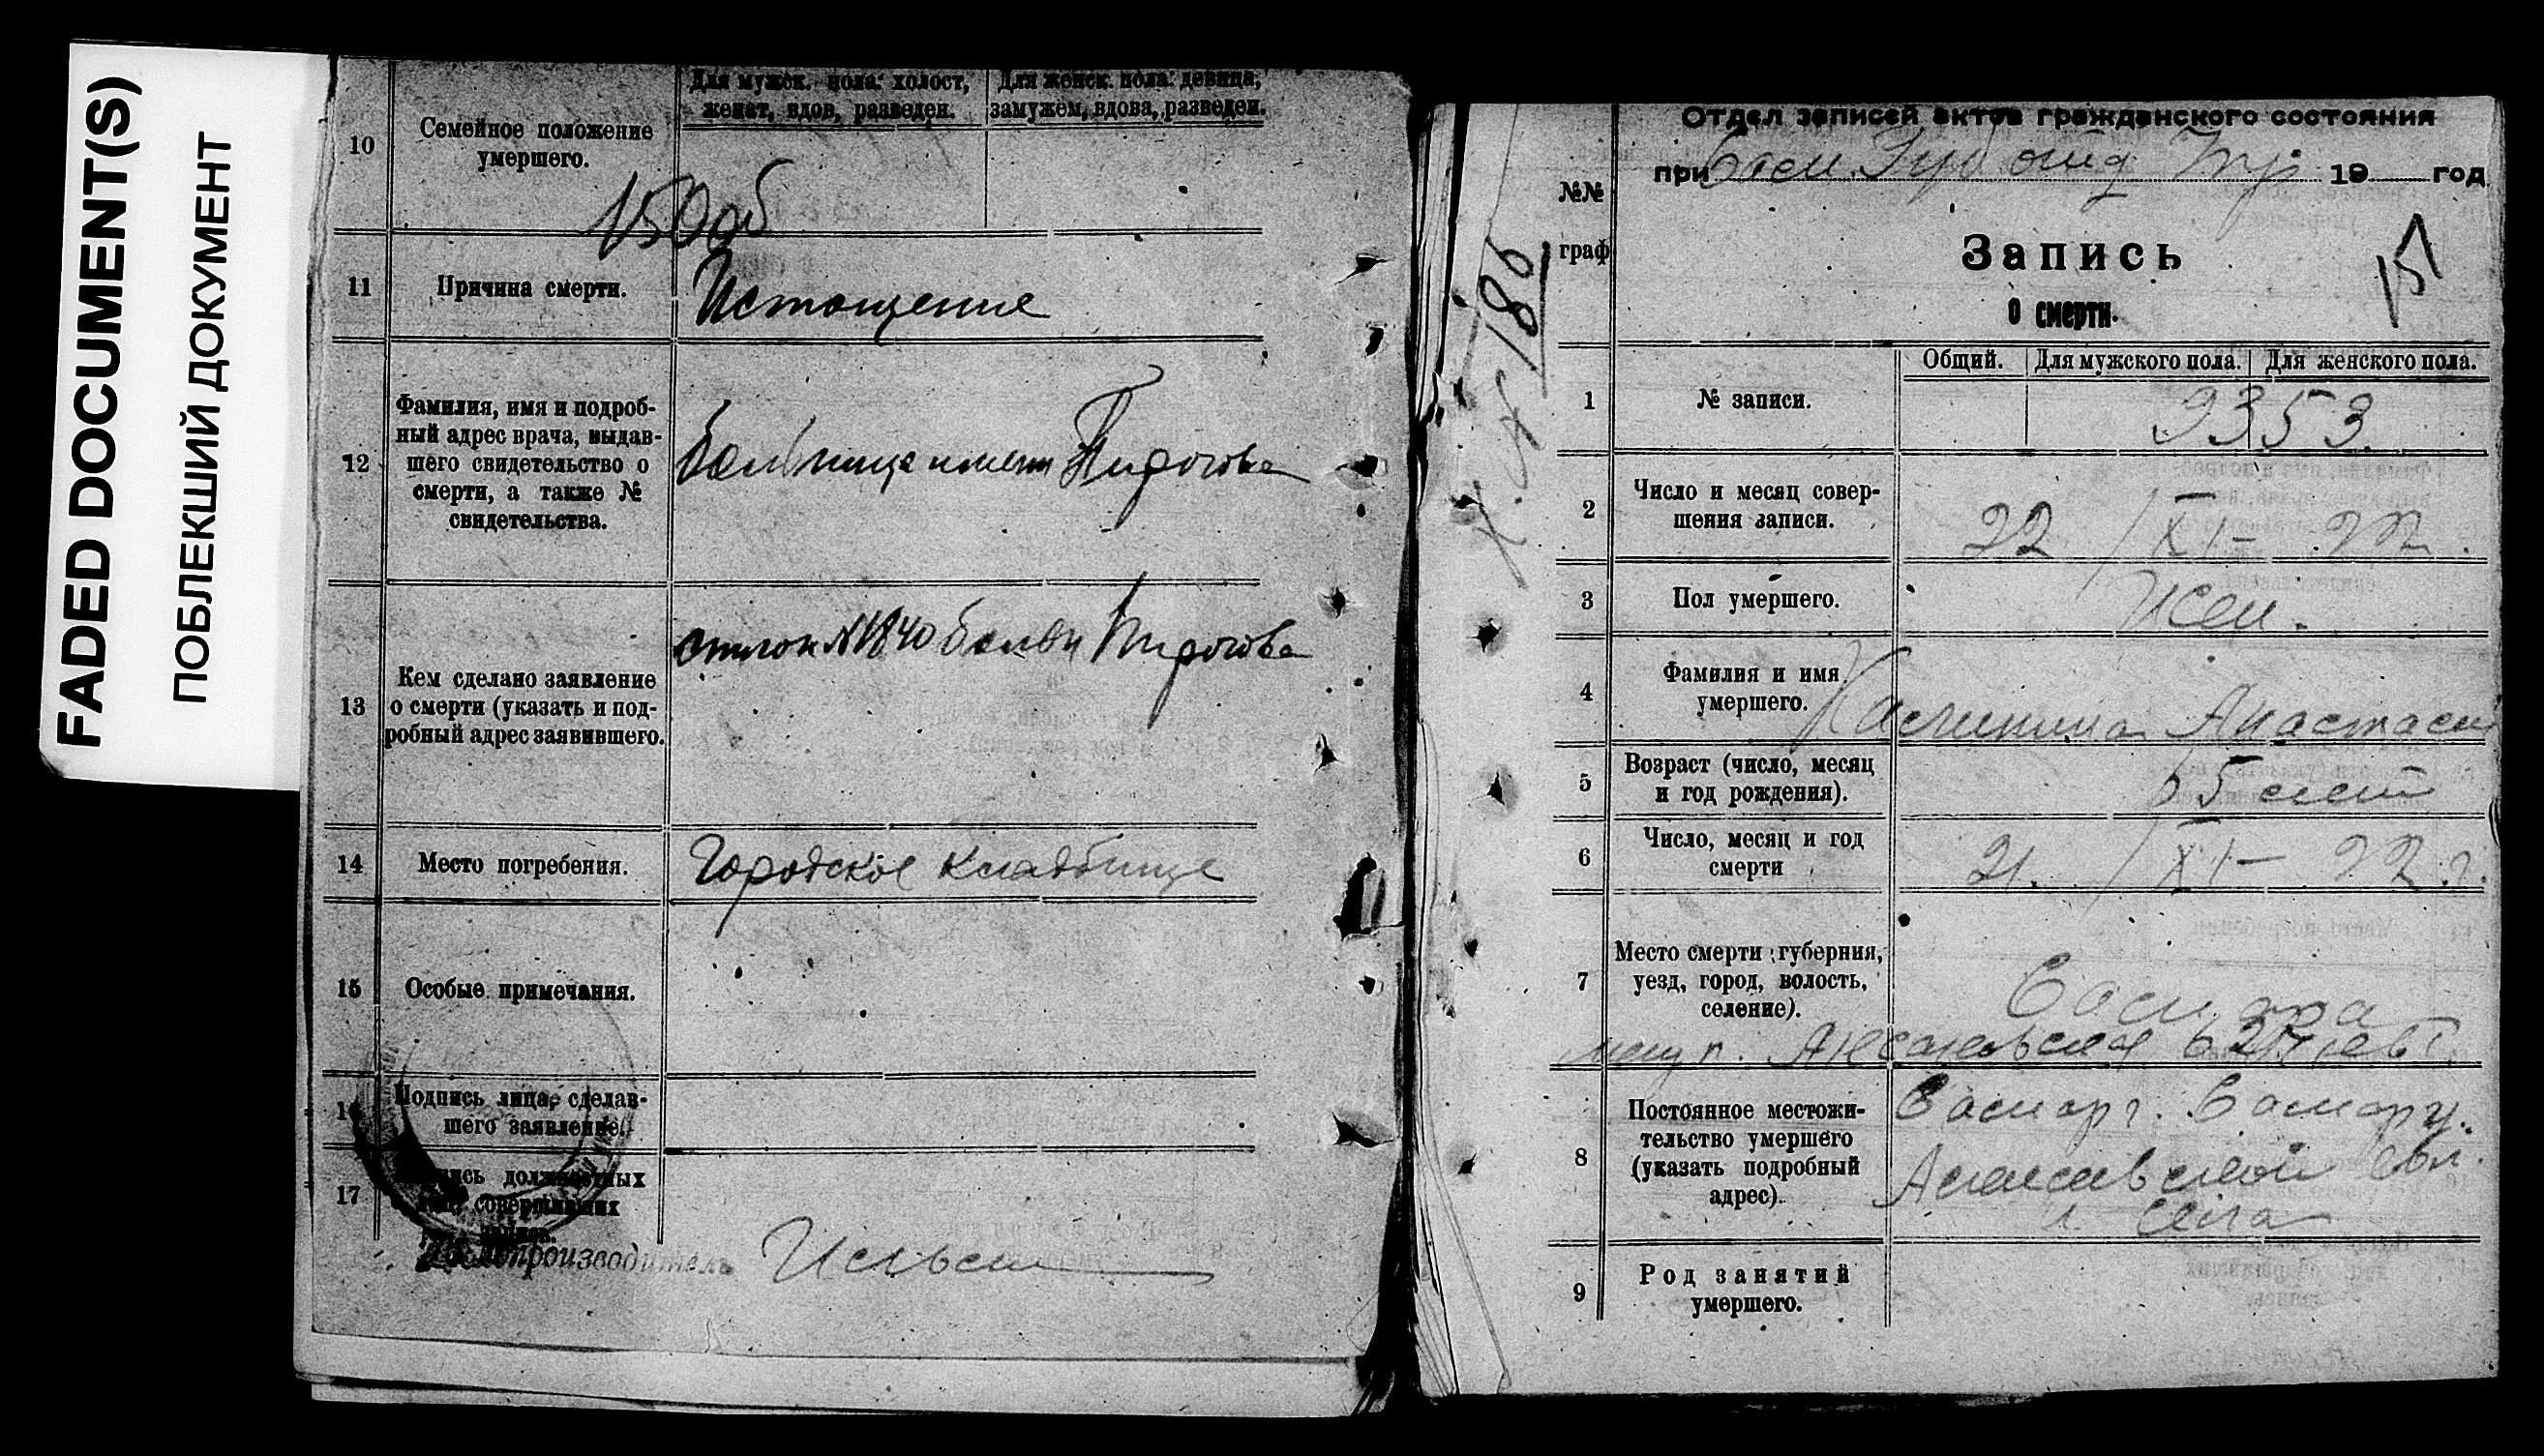 FADED DOCUMENT(S)
ПОБЛЕКШИЙ ДОКУМЕНТ
10
Семейное положение
умершего.
Для мужск. пола: холост,
женат, вдов, разведен.
Для женск. пола: девица,
замужем, вдова, разведен.
150об
11
Причина смерти.
Истощение
12
Фамилия, имя и подроб-
ный адрес врача, выдав-
шего свидетельство о
смерти, а также №
свидетельства.
Больница имени Пирогова
13
Кем сделано заявление
о смерти (указать и под-
робный адрес заявившего.
1840 больн Пирогова
14
Место погребения.
Городское кладбище
15
Особые примечания.
16
Подпись лица, сделав-
шего заявление.
17
Подпись должностных
лиц, совершивших
запись.
Делопроизводитель
№№
граф
Отдел записей актов гражданского состояния
при Сам Губ отд 19 год
151
Запись
о смерти.
186
Общий.
Для мужского пола.
Для женского пола.
1
№ записи.
9353.
2
Число и месяц совер-
шения записи.
22 / XI – 22.
3
Пол умершего.
Жен.
4
Фамилия и имя
умершего.
Калинина Анастасия
5
Возраст (число, месяц
и год рождения).
65 лет
6
Число, месяц и год
смерти
21. / XI – 22 г.
7
Место смерти губерния,
уезд, город, волость,
селение).
Самара
8
Постоянное местожи-
тельство умершего
(указать подробный
адрес).
Самар г. Самар у.
вол.
села
9
Род занятий
умершего.